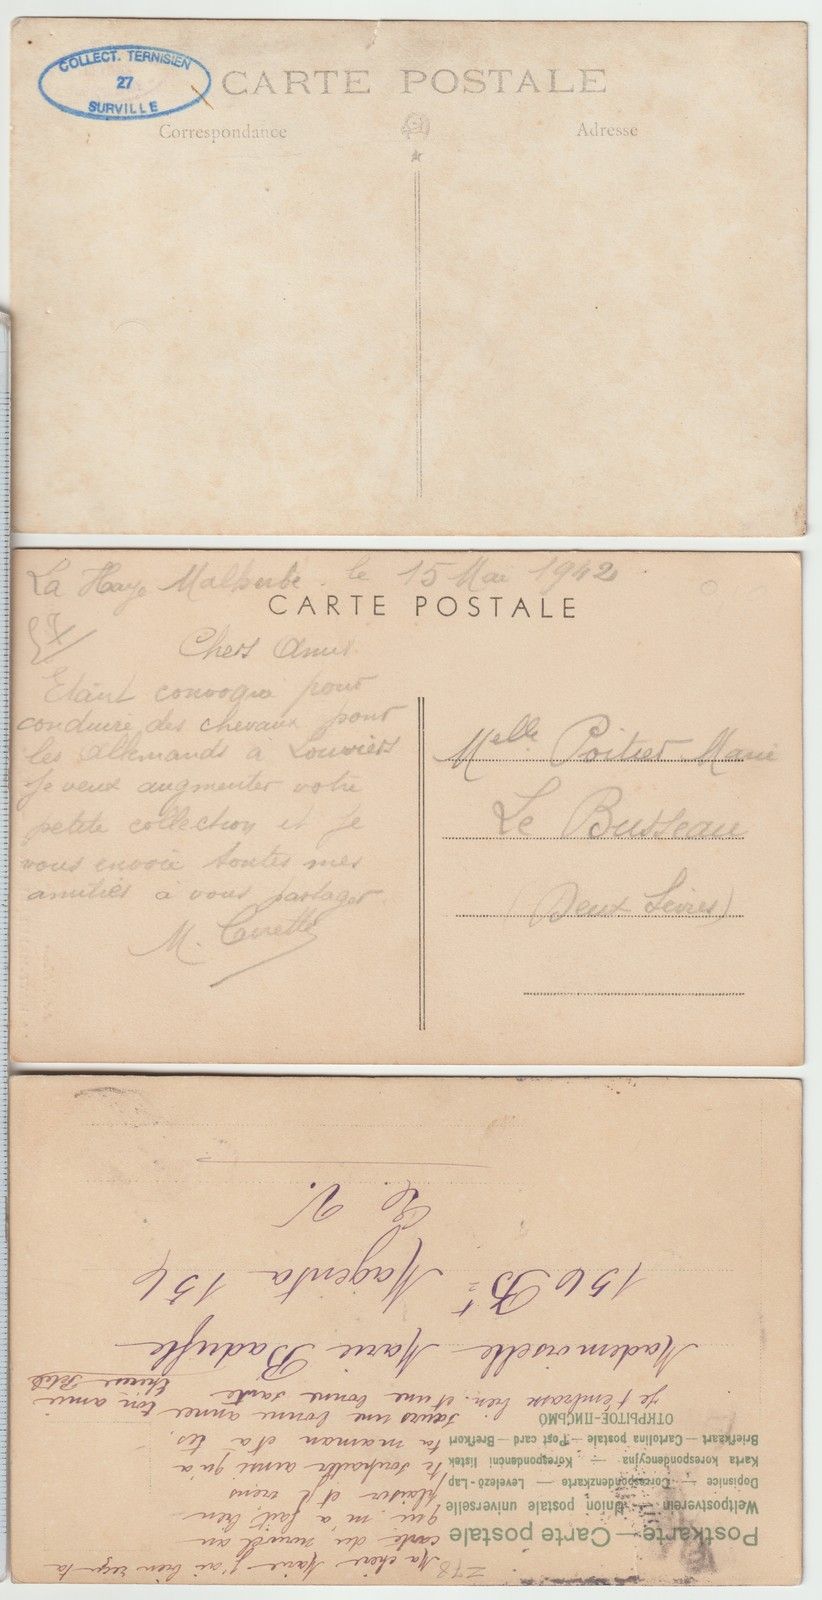 COLLECT. TERNISIEN
27
SURVILLE
CARTE POSTALE
Correspondance
Adresse
La Haye Malherbe le 15 Mai 1942
CARTE POSTALE
Chers Amis
Etant convoqué pour
conduire des chevaux pour
les allemands a Louviers
Je veux augmenter votre
petite collection et je
vous envoie toutes mes
amitiés à vous partager
M.
Melle Poitier Marie
Le Busseau
(Deux Sèvres)
Postkarte — Carte postale
Weltpostverein — Union postale universelle
Dopisnice — Correspondenzkarte — Levelező-Lap
Karta korespondencyjna — Korespondenční listek
Briefkaart — Cartolina postale — Post card — Brefkort
ОТКРЫТОЕ-ПИСЬМО
278
Ma chère Marie j'ai bien reçu ta
carte du nouvel an
qui m'a fait bien
plaisir et je viens
te souhaiter ainsi qu'a
ta maman et a tes
sœurs une bonne année ton amie
Je t'embrasse bien et une bonne santé
Mademoiselle Marie
156 Bt Magenta 156
E. V.